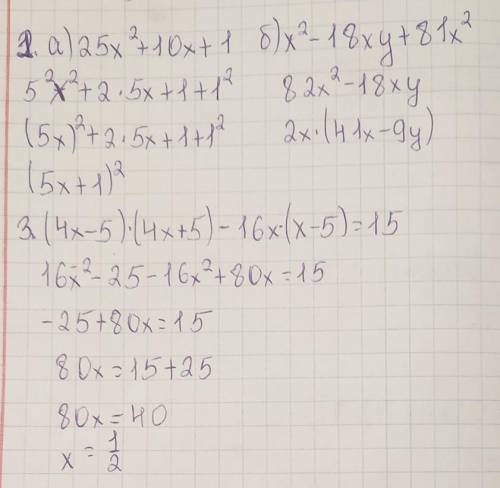 1. а) 25x²+10x+1 б) x²-18xy+81x²
5²x²+2·5x+1+1² 82x²-18xy
(5x)²+2·5x+1+1² 2x·(41x-9y)
(5x+1)²
3. (4x-5)·(4x+5)-16x·(x-5)=15
16x²-25-16x²+80x=15
-25+80x=15
80x=15+25
80x=40
x=1/2